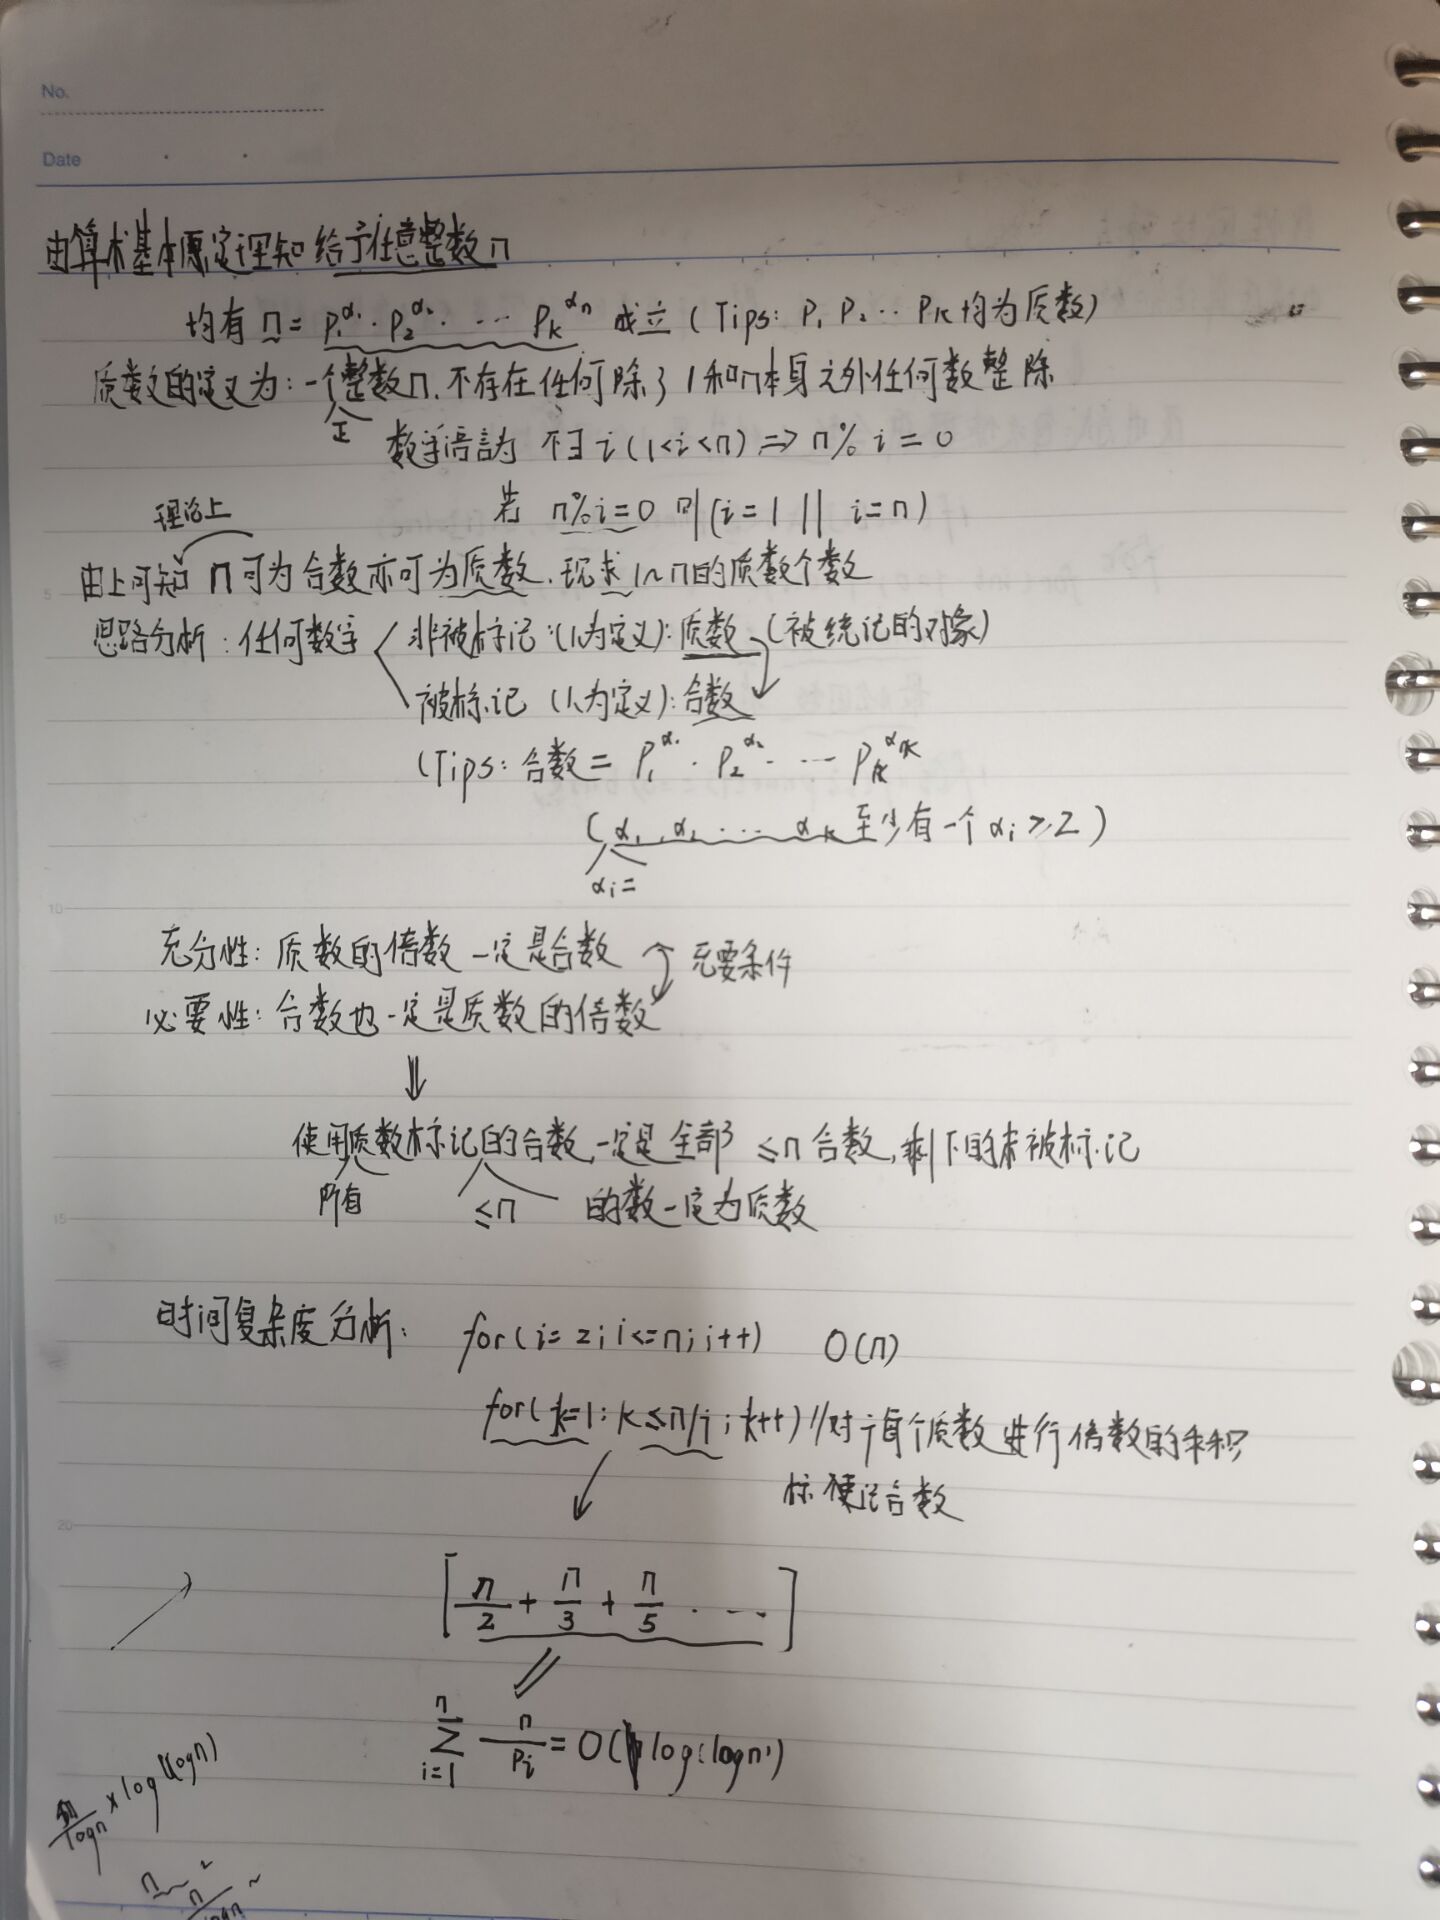 No.
Date
由算术基本原定理知 给予任意整数n
均有 n = P₁^α₁ · P₂^α₂ · ··· P_K^αn 成立 (Tips: P₁ P₂ ·· P_K 均为质数)
质数的定义为: 一个整数n, 不存在任何除了 1 和n本身之外任何数整除
正
数学语言为 不∃ i (1<i<n) ⇒ n% i = 0
理论上
若 n%i=0 则(i=1 || i=n)
由上可知 n 可为合数亦可为质数. 现求 1~n的质数个数
5
思路分析: 任何数字 非被标记:(人为定义): 质数 (被统记的对象)
被标记 (人为定义): 合数
(Tips: 合数 = P₁^α₁ · P₂^α₂ · ··· P_K^αK
(α₁, α₂ ··· α_K 至少有一个 αi ≥ 2)
αi =
10
充分性: 质数的倍数一定是合数 充要条件
必要性: 合数也一定是质数的倍数
⇓
使用质数标记的合数, 一定是 全部 ≤n 合数, 剩下的未被标记
所有 ≤n 的数一定为质数
15
时间复杂度分析: for(i=2; i<=n; i++) O(n)
for(k=1: k≤n/i; k++) //对于每个质数 进行倍数的乘积
标 记合数
20
[n/2 + n/3 + n/5 · ···]
∑_{i=1}^{n} n/Pi = O( log(logn))
n/logn × log(logn)
n
n/logn